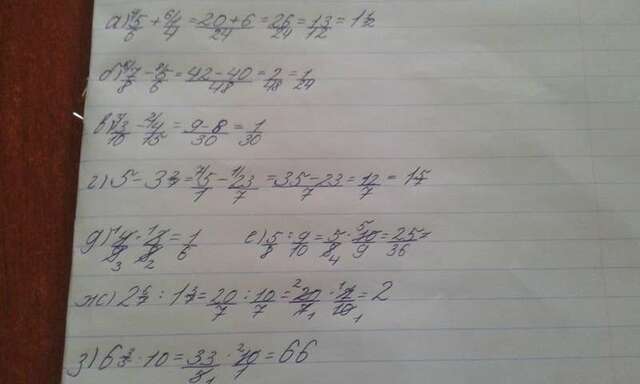 а) ⁴5/6 + ⁶1/4 = 20+6/24 = 26/24 = 13/12 = 1 1/12
б) ⁶7/8 - ⁸5/6 = 42-40/48 = 2/48 = 1/24
в) ³3/10 - ²4/15 = 9-8/30 = 1/30
г) 5 - 3 2/7 = ⁷5/1 - ¹23/7 = 35-23/7 = 12/7 = 1 5/7
д) 4/9 · 3/8 = 1/6 е) 5/8 : 9/10 = 5/8 · 10/9 = 25/36
ж) 2 6/7 : 1 3/7 = 20/7 : 10/7 = 20/7 · 7/10 = 2
з) 6 3/5 · 10 = 33/5 · 10/1 = 66